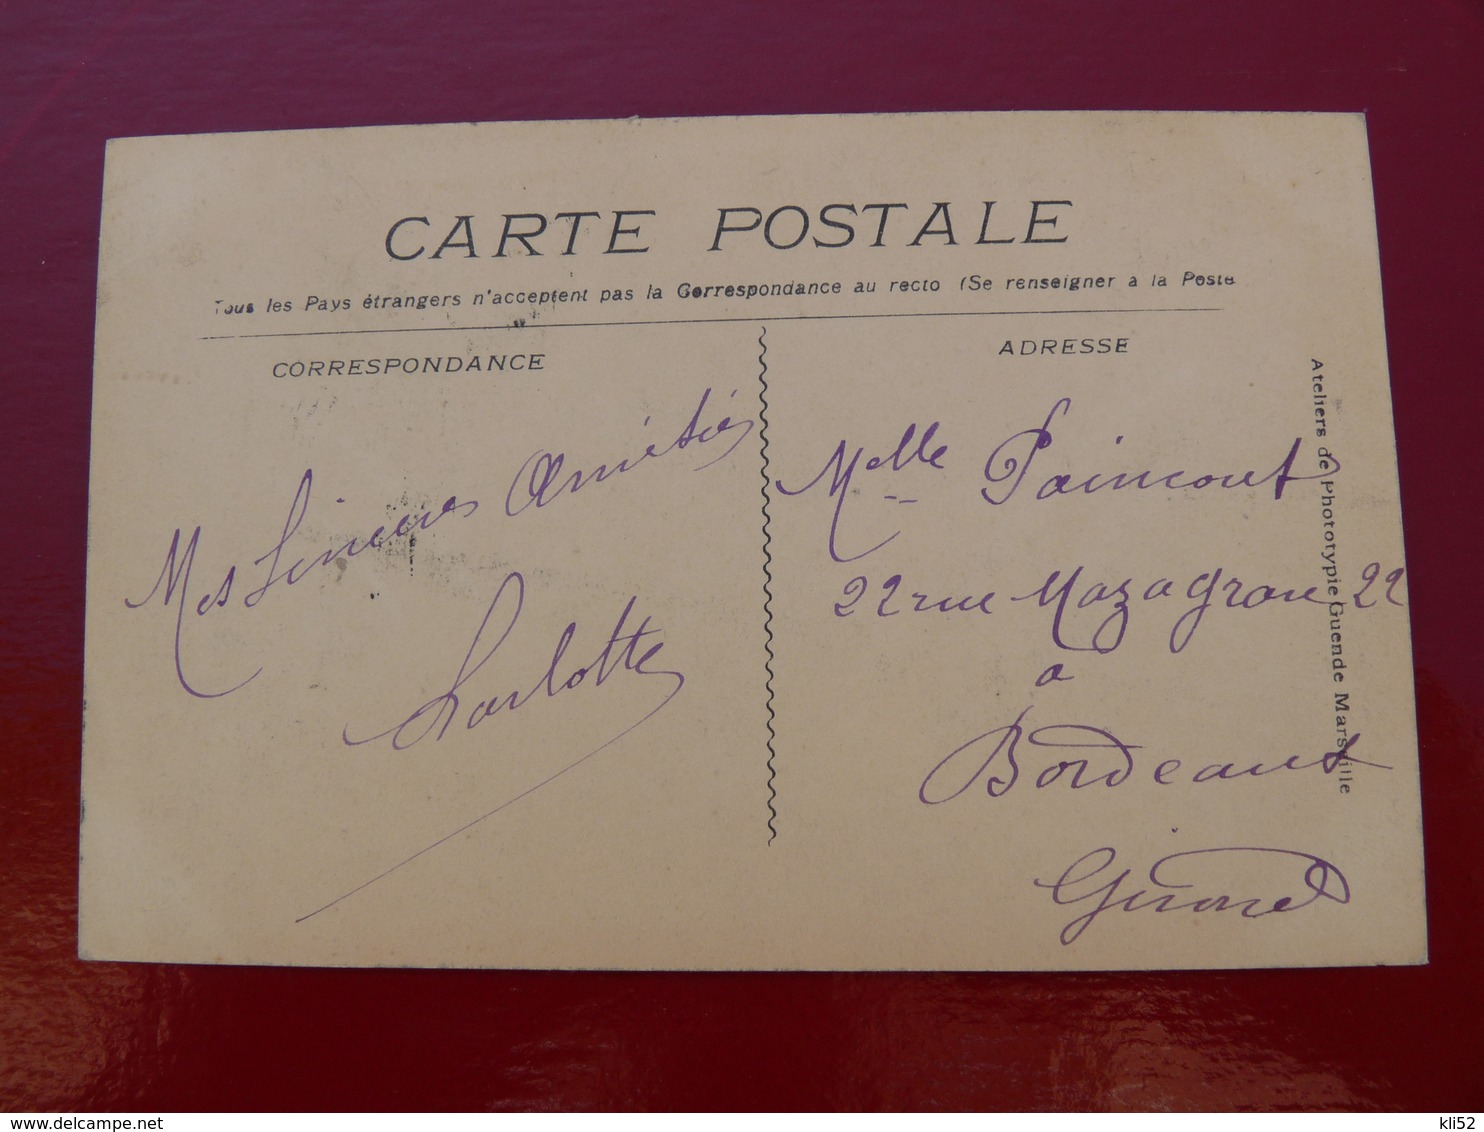 CARTE POSTALE
Tous les Pays étrangers n'acceptent pas la Correspondance au recto (Se renseigner à la Poste
CORRESPONDANCE
Mes Sincères Amitiés
Charlotte
ADRESSE
Melle Paincourt
22 rue Mazagran 22
a
Bordeaux
Gironde
Ateliers de Phototypie Guende Marseille
www.delcampe.net
kli52